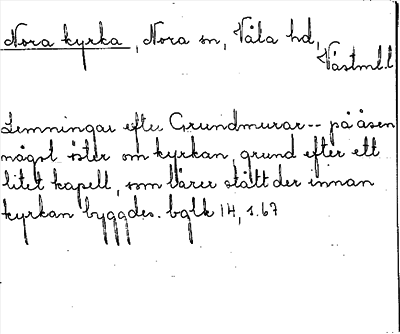 Nora kyrka, Nora sn, Våla hd,
Västml.l
Lemningar efter Grundmurar -- på åsen
något öster om kyrkan, grund efter ett
litet kapell, som lärer stått der innan
kyrkan byggdes. bglk 14, s. 67